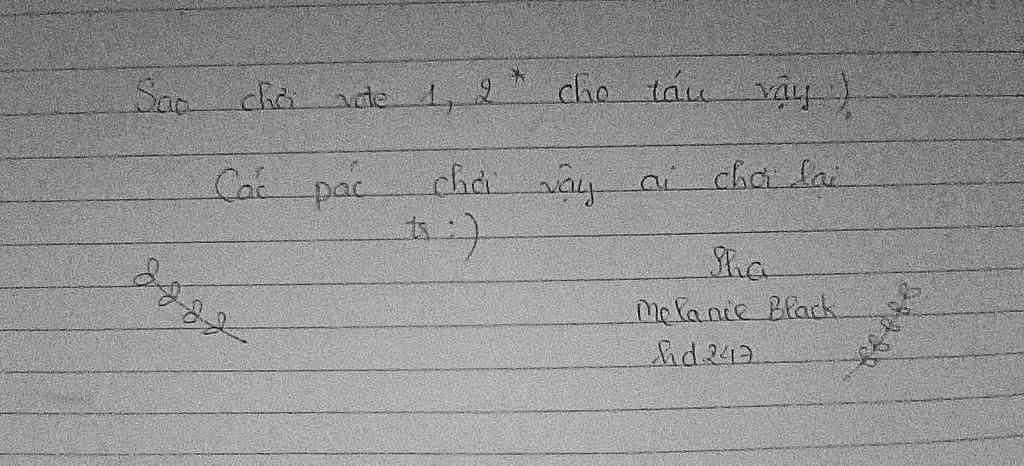 Sao chơi vote 1, 2* cho táu vậy :)
Các pác chơi vậy ai chơi lại
ts :)
Melanie Black
hd247